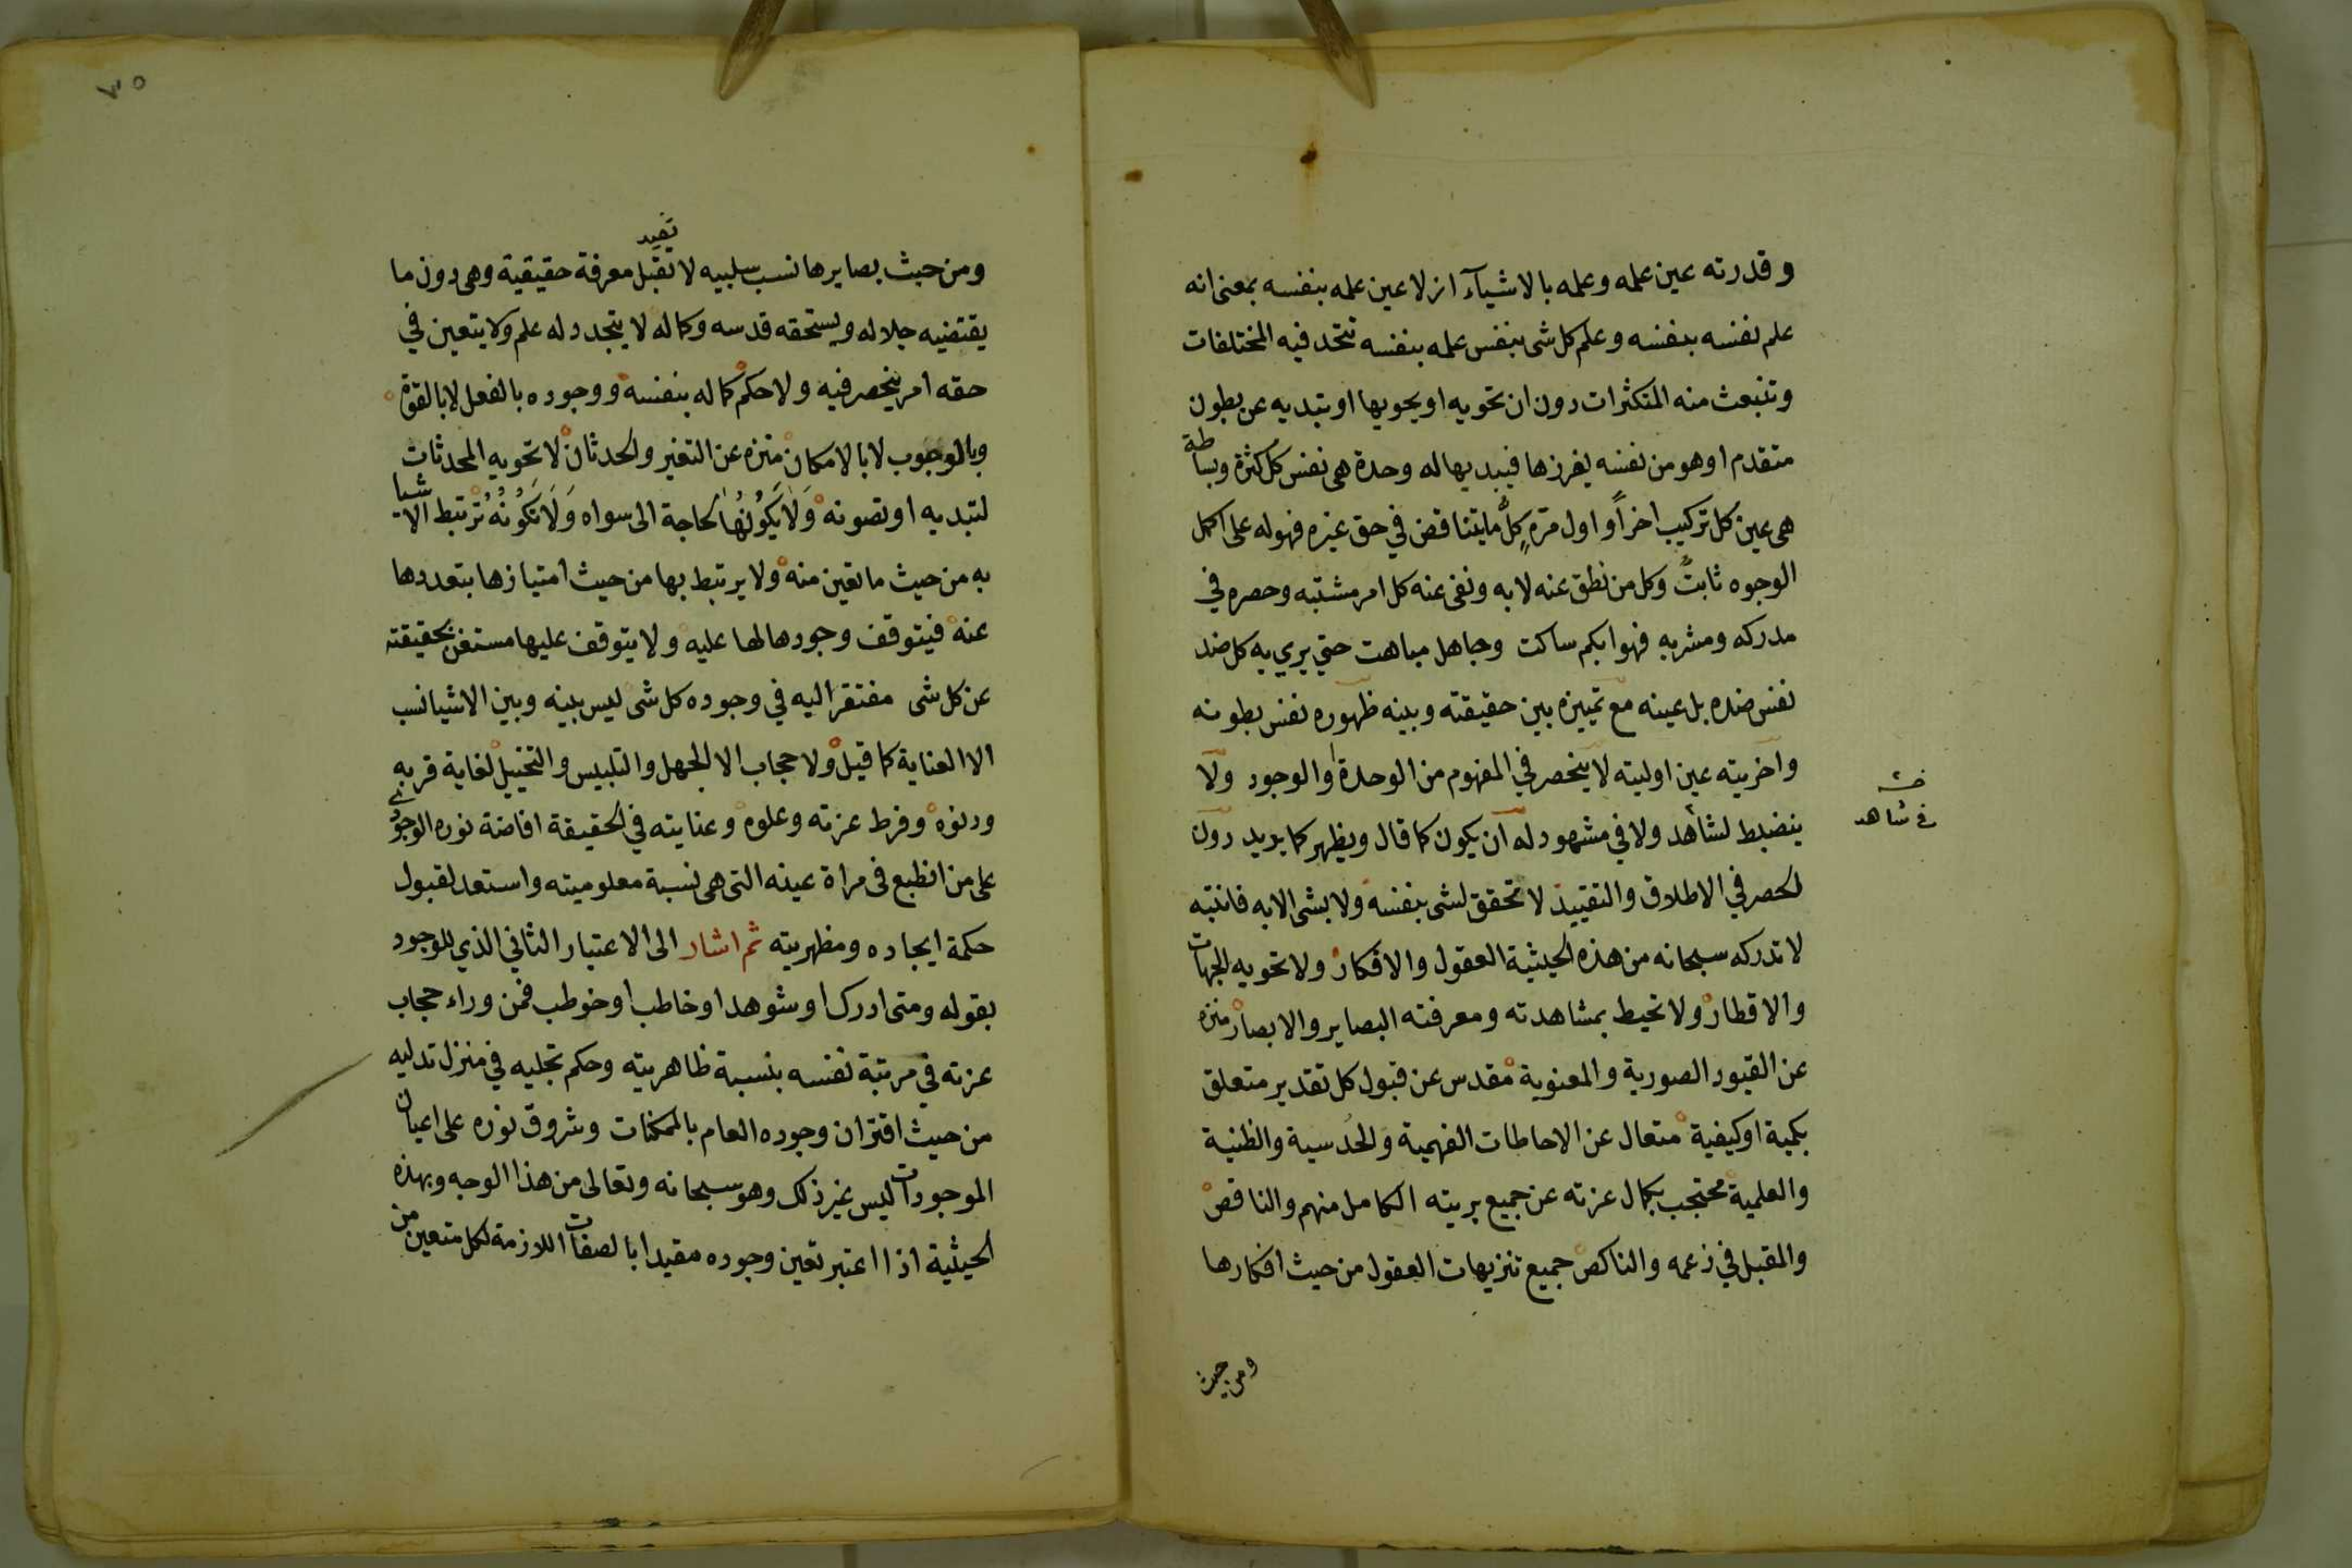 وقدرته عين علمه وعلمه بالاشيآء ازلا عين علمه بنفسه بمعنى انه
علم نفسه بنفسه وعلم كل شى بنفس علمه بنفسه تتحد فيه المختلفات
وتنبعث منه المتكثرات دون ان تحويه او يحويها او تبديه عن بطون
متقدم او هو من نفسه يفرزها فيبديها له وحدة هى نفس كل كثرة وبساطة
هى عين كل تركيب اخراً و اول مرة كلُّ ما يتناقض في حق غيره فهو له على اكمل
الوجوه ثابتٌ وكل من نطق عنه لا به ونفى عنه كل امر مشتبه وحصره في
مدركه ومشربه فهو ابكم ساكت وجاهل مباهت حتي يري به كل ضد
نفس ضده بل عينه مع تمييزه بين حقيقته وبينه ظهوره نفس بطونه
واخريته عين اوليته لا ينحصر في المفهوم من الوحدة او الوجود ولا
ينضبط لشاهد ولا في مشهود له ان يكون كما قال ويظهر كما يريد دون
في شاهد
الحصر في الاطلاق والتقييد لا تحقق لشى بنفسه ولا بشى الا به فانتبه
لا تدركه سبحانه من هذه الحيثية العقول والافكار ولا تحويه الجهات
والاقطار ولا تحيط بمشاهدته ومعرفته البصاير والابصار منزه
عن القيود الصورية والمعنوية مقدس عن قبول كل تقدير متعلق
بكمية او كيفية متعال عن الاحاطات الفهمية والحدسية والظنية
والعلمية محتجب بكمال عزته عن جميع بريته الكامل منهم والناقص
والمقبل في زعمه والناكص جميع تنزيهات العقول من حيث افكارها
ومن حيث
٣٥
تفيد
ومن حيث بصايرها نسب سلبيه لا تقبل معرفة حقيقية وهى دون ما
يقتضيه جلاله ويستحقه قدسه وكماله لا يتجدد له علم ولا يتعين في
حقه امر ينحصر فيه ولا حكم كماله بنفسه ووجوده بالفعل لا بالقوة
وبالوجوب لا بالامكان منزه عن التغير والحدثان لا تحويه المحدثات
لتبديه او تصونه وَلَا يَكُونُهَا لحاجة الى سواه وَلَا تَكُونُهُ ترتبط الاشيا
به من حيث ما تعين منه ولا يرتبط بها من حيث امتيازها بتعددها
عنه فيتوقف وجودها لها عليه ولا يتوقف عليها مستغن بحقيقته
عن كل شى مفتقر اليه في وجوده كل شى ليس بينه وبين الاشيا نسب
الا العناية كما قيل ولا حجاب الا الجهل والتلبيس والتخييل لغاية قربه
ودنوه وفرط عزته وعلوه وعنايته في الحقيقة افاضة نوره الوجودي
على من انطبع فى مراة عينه التى هى نسبة معلوميته واستعد لقبول
حكمة ايجاده ومظهريته ثم اشار الى الاعتبار الثاني الذي للوجود
بقوله ومتى ادرك او شوهد او خاطب او خوطب فمن وراء حجاب
عزته في مرتبة نفسه بنسبة ظاهريته وحكم تجليه في منزل تدليه
من حيث اقتران وجوده العام بالممكنات وشروق نوره على اعيان
الموجودات ليس غير ذلك وهو سبحانه وتعالى من هذا الوجه وبهذه
الحيثية اذا اعتبر تعين وجوده مقيدا بالصفات اللازمة لكل متعين من